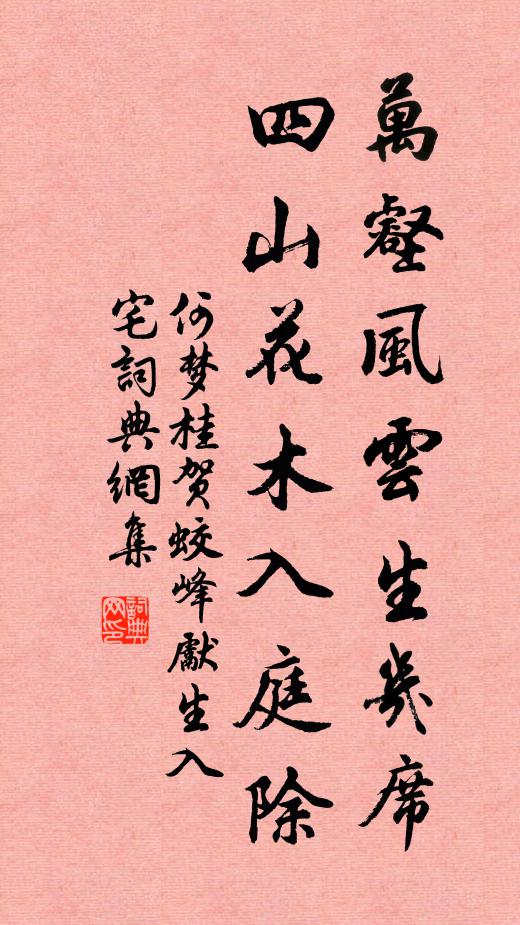 萬壑風雲生几席
四山花木入庭除
何梦桂贺蛟峰獻生入
宅詞典網集
詞典
网印